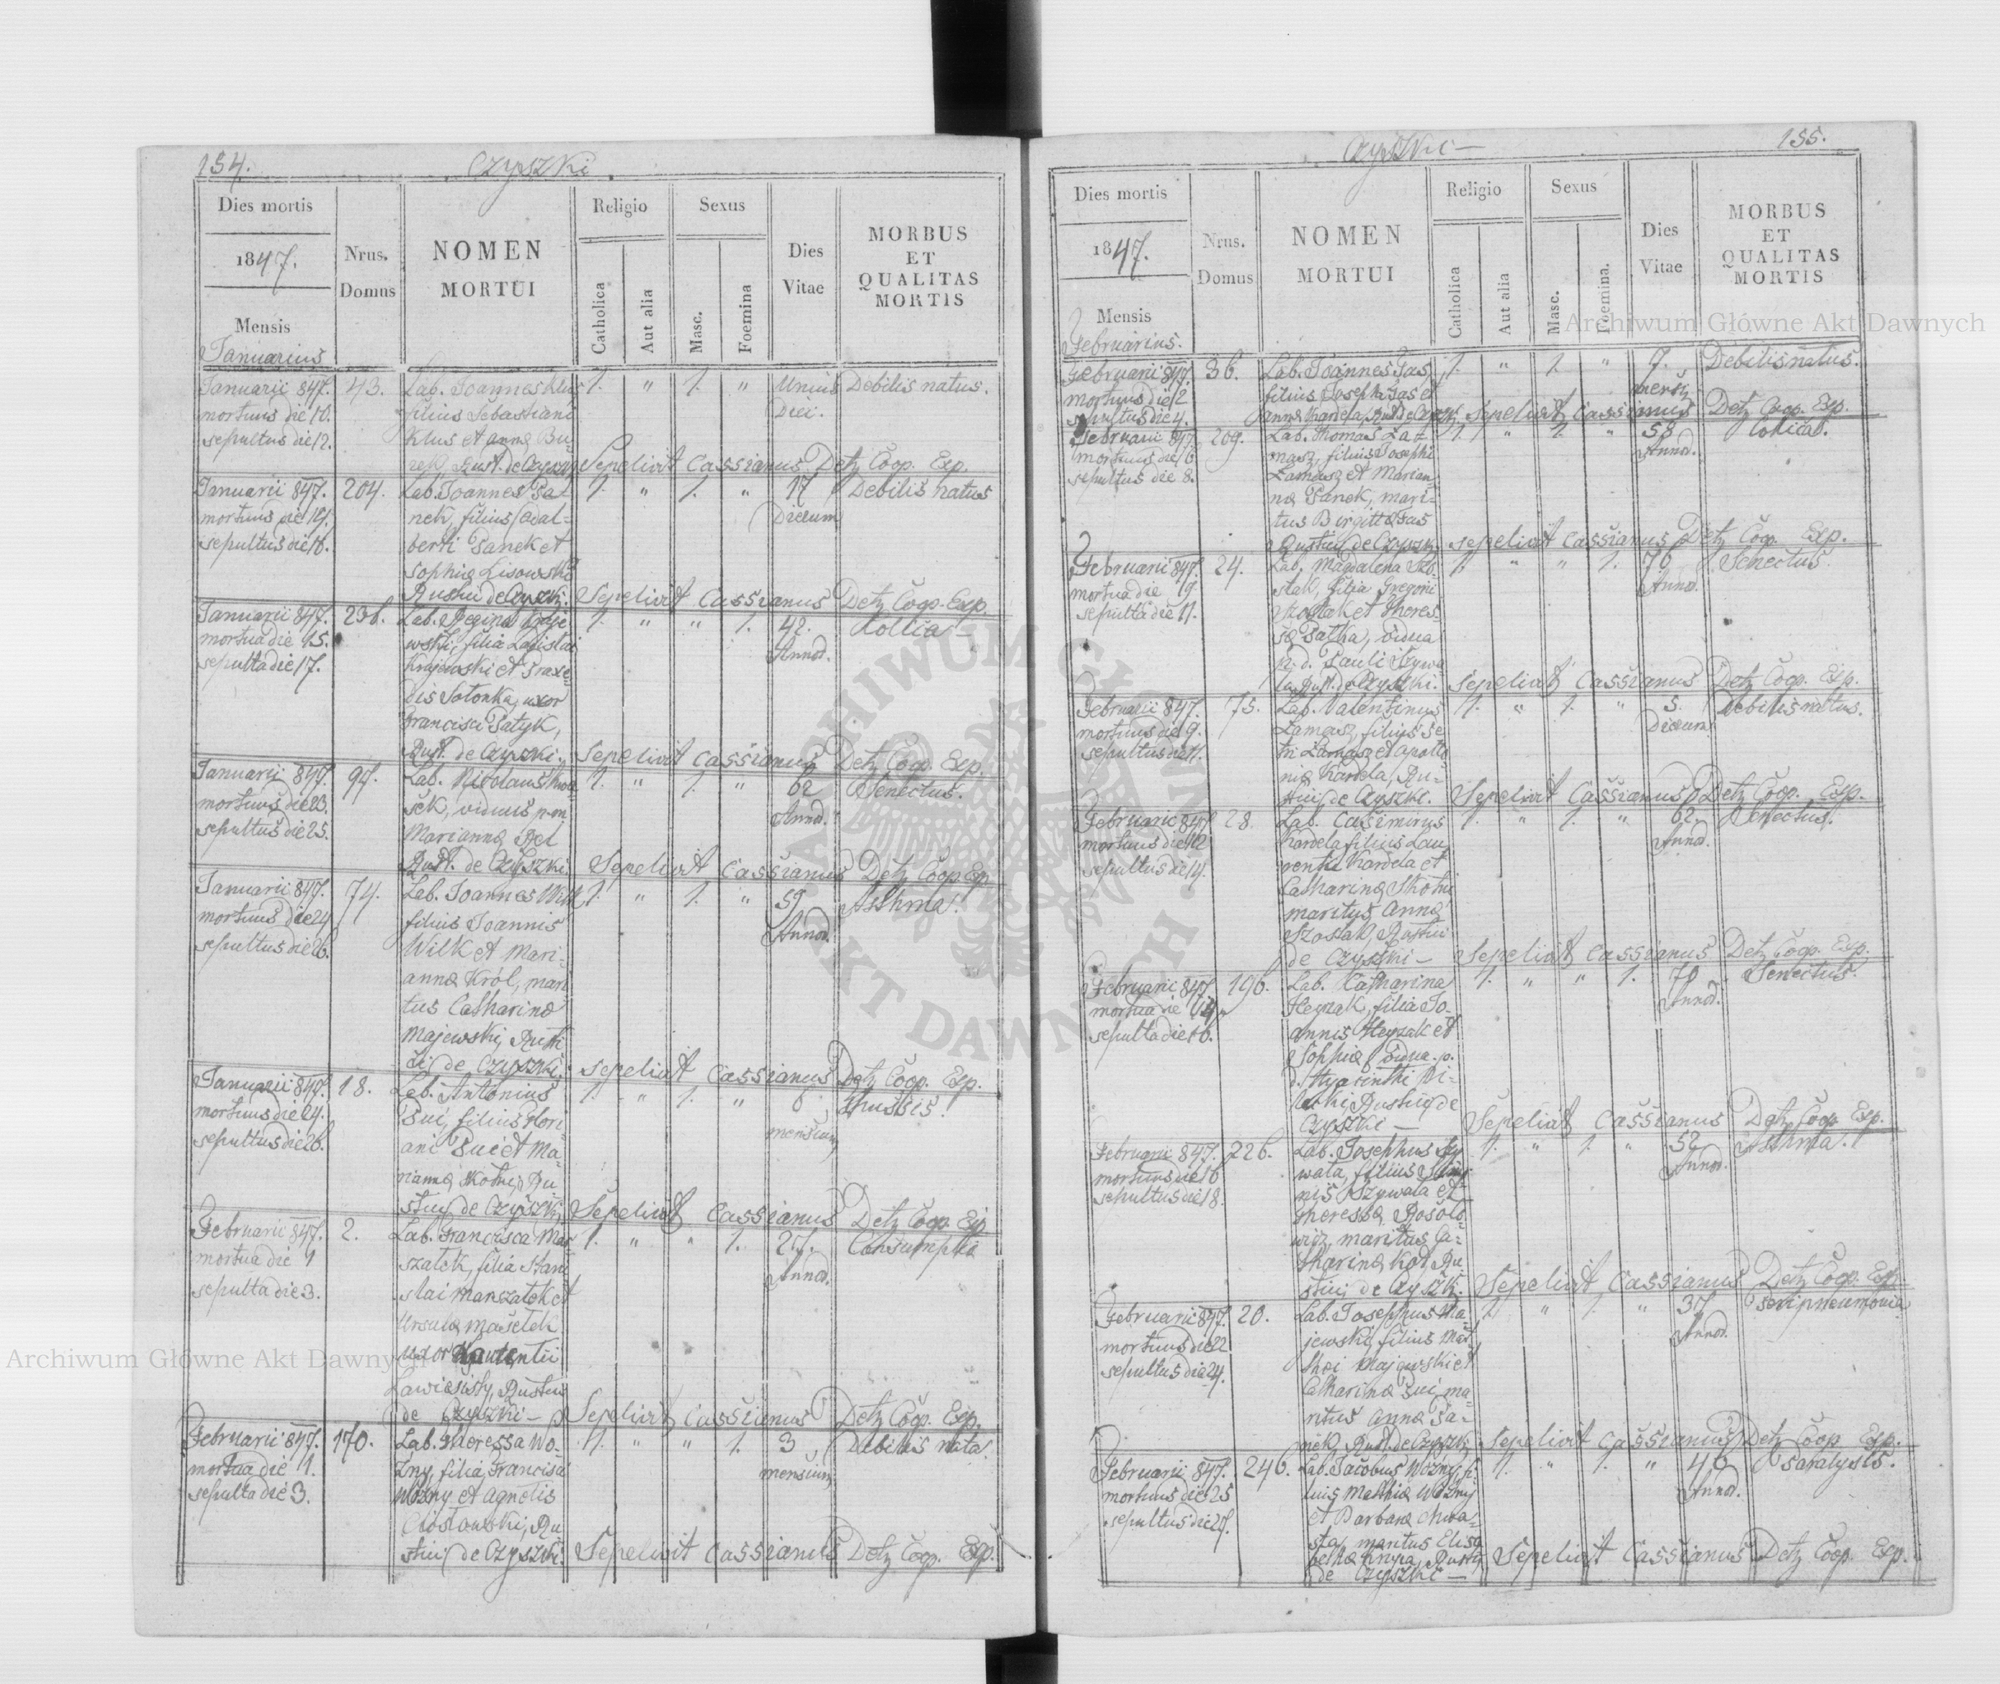 154.
Czyszki.
Dies mortis
1847.
Mensis
Januarius
Nrus.
Domus
NOMEN
MORTUI
Religio
Catholica
Aut alia
Sexus
Masc.
Foemina
Dies
Vitae
MORBUS
ET
QUALITAS
MORTIS
Januarii 847. 43. Lab. Joannes Klus 1. " 1. " Unius Debilis natus.
mortuus die 10. filius Sebastiani Diei.
sepultus die 12. Klus et Anna
Rust. de Czyszki Sepelivit Cassianus Detz Coop. Exp.
Januarii 847. 204. Lab. Joannes Pa- 1. " 1. " 17 Debilis natus
mortuus die nek, filius Adal- Dierum
sepultus die 16. berti Panek et
Sophiæ Lisowski
Rustici de Czyszki. Sepelivit Cassianus Detz Coop. Exp.
Januarii 847. 236. Lab. Regina Kraje- 1. " " 1. 42.
mortua die 15. wski, filia Ladislai Annor.
sepulta die 17. Krajewski et Praxe-
dis Sotonka, uxor
Francisci Patyk,
Rust. de Czyszki. Sepelivit Cassianus Detz Coop. Exp.
Januarii 847. 97. Lab. Nicolaus 1. " 1. " 62 Senectus.
mortuus die 23. sek, viduus Annor.
sepultus die 25. Mariannæ
Rust. de Czyszki. Sepelivit Cassianus Detz Coop Exp
Januarii 847. 74. Lab. Joannes Wilk 1. " 1. " 59 Asthma.
mortuus die 24 filius Joannis Annor.
sepultus die 26. Wilk et Mari-
annæ Król, mari-
tus Catharinæ
Majewski, Rusti-
ci de Czyszki. Sepelivit Cassianus Detz Coop. Exp.
Januarii 847. 18. Lab. Antonius 1. " 1. " Thussis.
mortuus die 24. Puć, filius Flori- mensium
sepultus die 26. ani Puć et Ma-
riannæ Kotni, Ru-
stici de Czyszki, Sepelivit Cassianus Detz Coop. Exp
Februarii 847. 2. Lab. Francisca Mar- 1. " " 1. 27. Consumptio
mortua die 1 szałek, filia Stani- Annor.
sepulta die 3. slai Marszałek et
Ursulæ
uxor
Rustici
de Czyszki - Sepelivit Cassianus Detz Coop. Exp.
Februarii 847. 170. Lab. Theressa Wo- 1. " " 1. 3 Debilis nata.
mortua die 1. zny, filia Francisci mensium
sepulta die 3. Wozny et Agnetis
Ru-
stici de Czyszki. Sepelivit Cassianus Detz Coop. Exp.
Czyszki -
155.
Dies mortis
1847.
Mensis
Februarius.
Nrus.
Domus
NOMEN
MORTUI
Religio
Catholica
Aut alia
Sexus
Masc.
Foemina.
Dies
Vitae
MORBUS
ET
QUALITAS
MORTIS
Februarii 847. 36. Lab. Joannes Gas, 1. " 1. " 9. Debilis natus.
mortuus die 2 filius Josephi Gas et mensi
sepultus die 4. Annæ Kardela, Rust. de Czyszki. Sepelivit Cassianus Detz Coop. Exp.
Februarii 847. 209. Lab. Thomas Łaz- 1. " 1. " 58
mortuus die 6 filius Josephi Annor.
sepultus die 8. et Marian-
næ Panek, mari-
tus Birgittæ Gas
Rustici de Czyszki Sepelivit Cassianus Detz Coop. Exp.
Februarii 847. 24. Lab. Magdalena Szo- 1. " " 1. 76 Senectus.
mortua die 9. stak, filia Gregorii Annor.
sepulta die 11. et Theres-
sæ Patka, vidua
p. d. Pauli Szywa-
la, Rust. de Czyszki. Sepelivit Cassianus Detz Coop. Exp.
Februarii 847. 75. Lab. Valentinus 1. " 1. " 5. Debilis natus.
mortuus die 9. filius Pe- Dierum
sepultus die 11. tri et Apollo-
niæ Kardela, Ru-
stici de Czyszki. Sepelivit Cassianus Detz Coop. Exp.
Februarii 847 28. Lab. Casimirus 1. " 1. " 62. Senectus.
mortuus die 12 Kardela filius Lau- Annor.
sepultus die 14. rentii Kardela et
Catharinæ Skotni
maritus Annæ
Szostak, Rustici
de Czyszki - Sepelivit Cassianus Detz Coop. Exp.
Februarii 847. 196. Lab. Catharina 1. " " 1. 70 Senectus.
mortua die 14. Heyzak, filia Jo- Annor.
sepulta die 16. annis Heyzak et
Sophiæ vidua p.
d. Hyacinthi
Rustici de
Czyszki - Sepelivit Cassianus Detz Coop Exp.
Februarii 847. 226. Lab. Josephus Szy- 1. " 1. " 52 Asthma.
mortuus die 16 wala, filius Annor.
sepultus die 18. Szywala et
Theressæ Rosolo-
wicz, maritus Ca-
tharinæ Kot, Ru-
stici de Czyszki. Sepelivit Cassianus Detz Coop. Exp.
Februarii 847. 20. Lab. Josephus Ma- 1. " 1. " 37
mortuus die 22 jewski, filius Mat- Annor.
sepultus die 24. thæi Majewski et
Catharinæ Puć, ma-
ritus Annæ Pa-
nek, Rust. de Czyszki. Sepelivit Cassianus Detz Coop Exp.
Februarii 847. 246. Lab. Jacobus Wozny, fi- 1. " 1. " 46 Paralysis.
mortuus die 25 lius Mathiæ Wozny Annor.
sepultus die 27. et Barbaræ Chwa-
sta, maritus Elisa-
bethæ Krupa, Rustici Sepelivit Cassianus Detz Coop. Exp.
de Czyszki -
Archiwum Główne Akt Dawnych
Archiwum Główne Akt Dawnych
ARCHIWUM GŁÓWNE AKT DAWNYCH